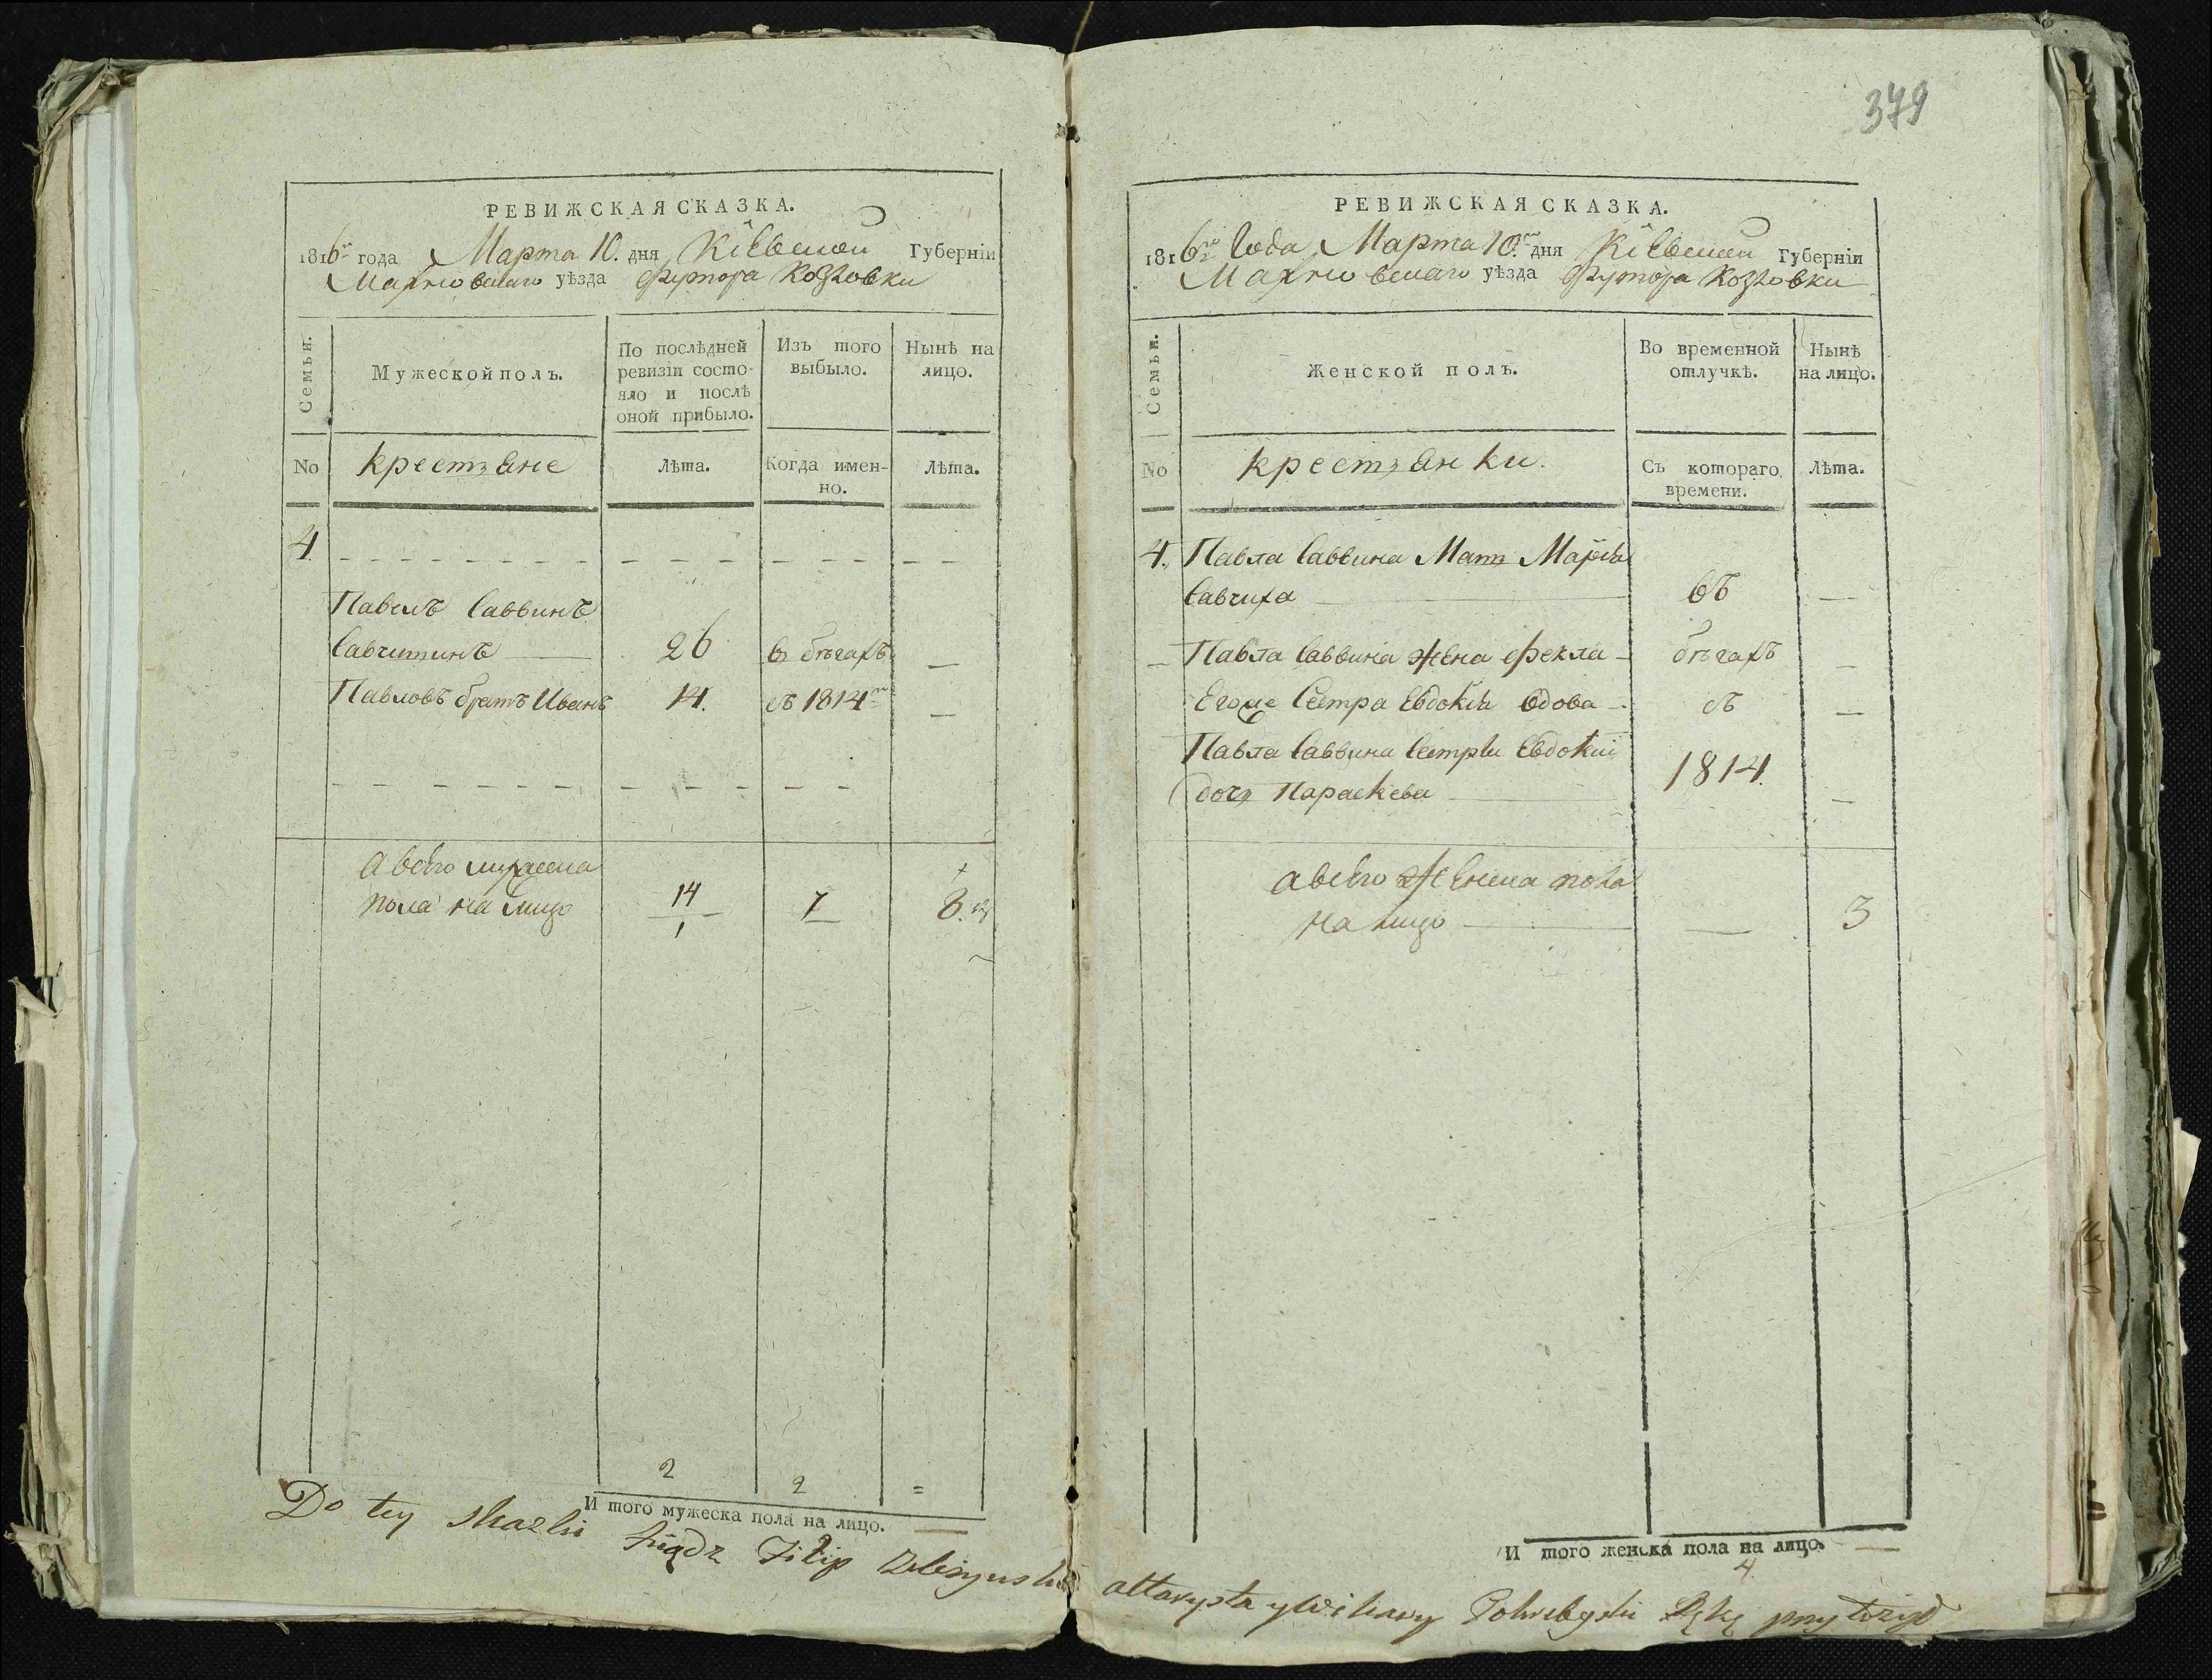 РЕВИЖСКАЯ СКАЗКА.
1816го года Марта 10. дня Кіевской Губерніи
Махновскаго уѣзда Футора Козловки
Семьи.
Мужеской полъ.
По послѣдней ревизіи состо-
яло и послѣ
оной прибыло.
Изъ того
выбыло.
Нынѣ на
лицо.
No
крестьяне
лѣта.
Когда имен-
но.
Лѣта.
4.
Павелъ Саввинъ
Савчишинъ 26 в бѣгахъ —
Павловъ братъ Иванъ 14. съ 1814го —
А всего мужеска
пола на лицо 14 7 8.
1
2 2 =
И того мужеска пола на лицо. —
Do tey skazki Xiądz Filip
379
РЕВИЖСКАЯ СКАЗКА.
1816го Года Марта 10го дня Кіевской Губерніи
Махновскаго уѣзда Футора Козловки
Семьи.
Женской полъ.
Во временной
отлучкѣ.
Нынѣ
на лицо.
No
крестьянки.
Съ котораго
времени.
Лѣта.
4. Павла Саввина Мать Марья
Савчиха — въ —
— Павла Саввина жена Фекла — бѣгахъ —
Егоже Сестра Евдокія вдова — съ —
Павла Саввина Сестры Евдокіи
дочь Параскева — 1814. —
а всего женска пола
на лицо — — 3
И того женска пола на лицо. —
4.
altarysta y Wikary Pohrebyski Rękę